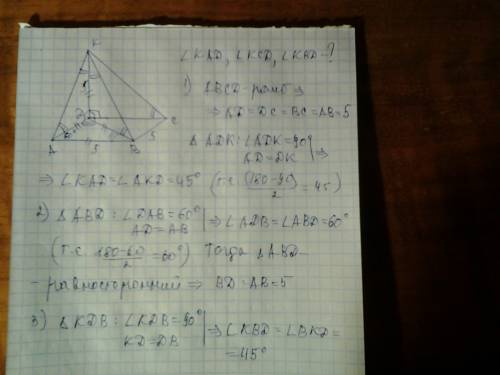 ∠KAD, ∠KCD, ∠KBD-?
1) ABCD-ромб ⇒
⇒ AD=DC=BC=AB=5
△ ADK: ∠ADK=90° | ⇒
AD=DK
⇒ ∠KAD=∠AKD=45° (т.с. (180-90)/2 = 45)
2) △ABD: ∠DAB=60° | ⇒ ∠ADB=∠ABD=60°
AD=AB
(т.с. 180-60/2 =60°) Тогда △ABD-
-равносторонний ⇒ BD=AB=5
3) △KDB: ∠KDB=90° | ⇒ ∠KBD=∠BKD=
KD=DB
=45°
K
A
B
C
5
5